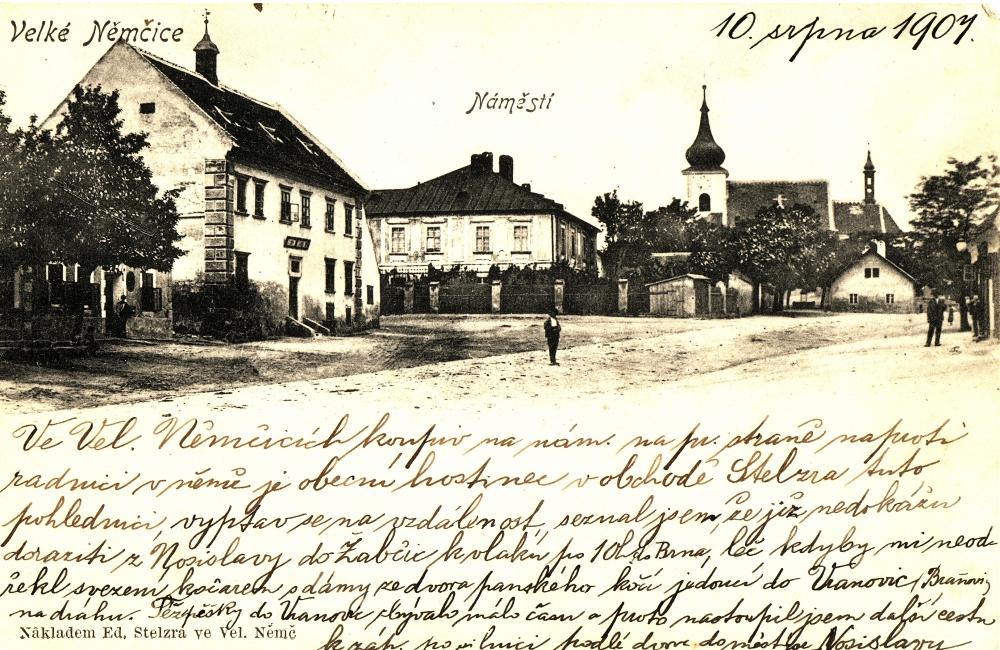 Velké Němčice
10. srpna 1907.
Náměstí
Ve Vel. Němčicích koupiv na nám. na pr. straně naproti
radnici v němž je obecní hostinec v obchodě Stelzra tuto
pohlednici, vyptav se na vzdálenost, seznal jsem, že již nedokážu
doraziti z Nosislavy do Žabčic k vlaku po 10h. do Brna, leč kdyby mi neod-
řekl svezení kočárem s dámy ze dvora panského kočí jedoucí do Vranovic
na dráhu. Též pěšky do Vranovic zbývalo málo času a proto nastoupil jsem další cestu
k záp. po silnici podlé dvora do městce Nosislavu
Nákladem Ed, Stelzra ve Vel. Němč